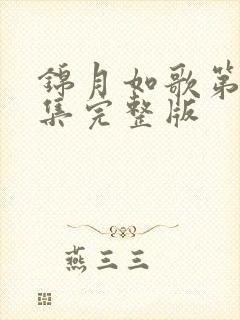 錦月如歌第
集完整版
燕三三